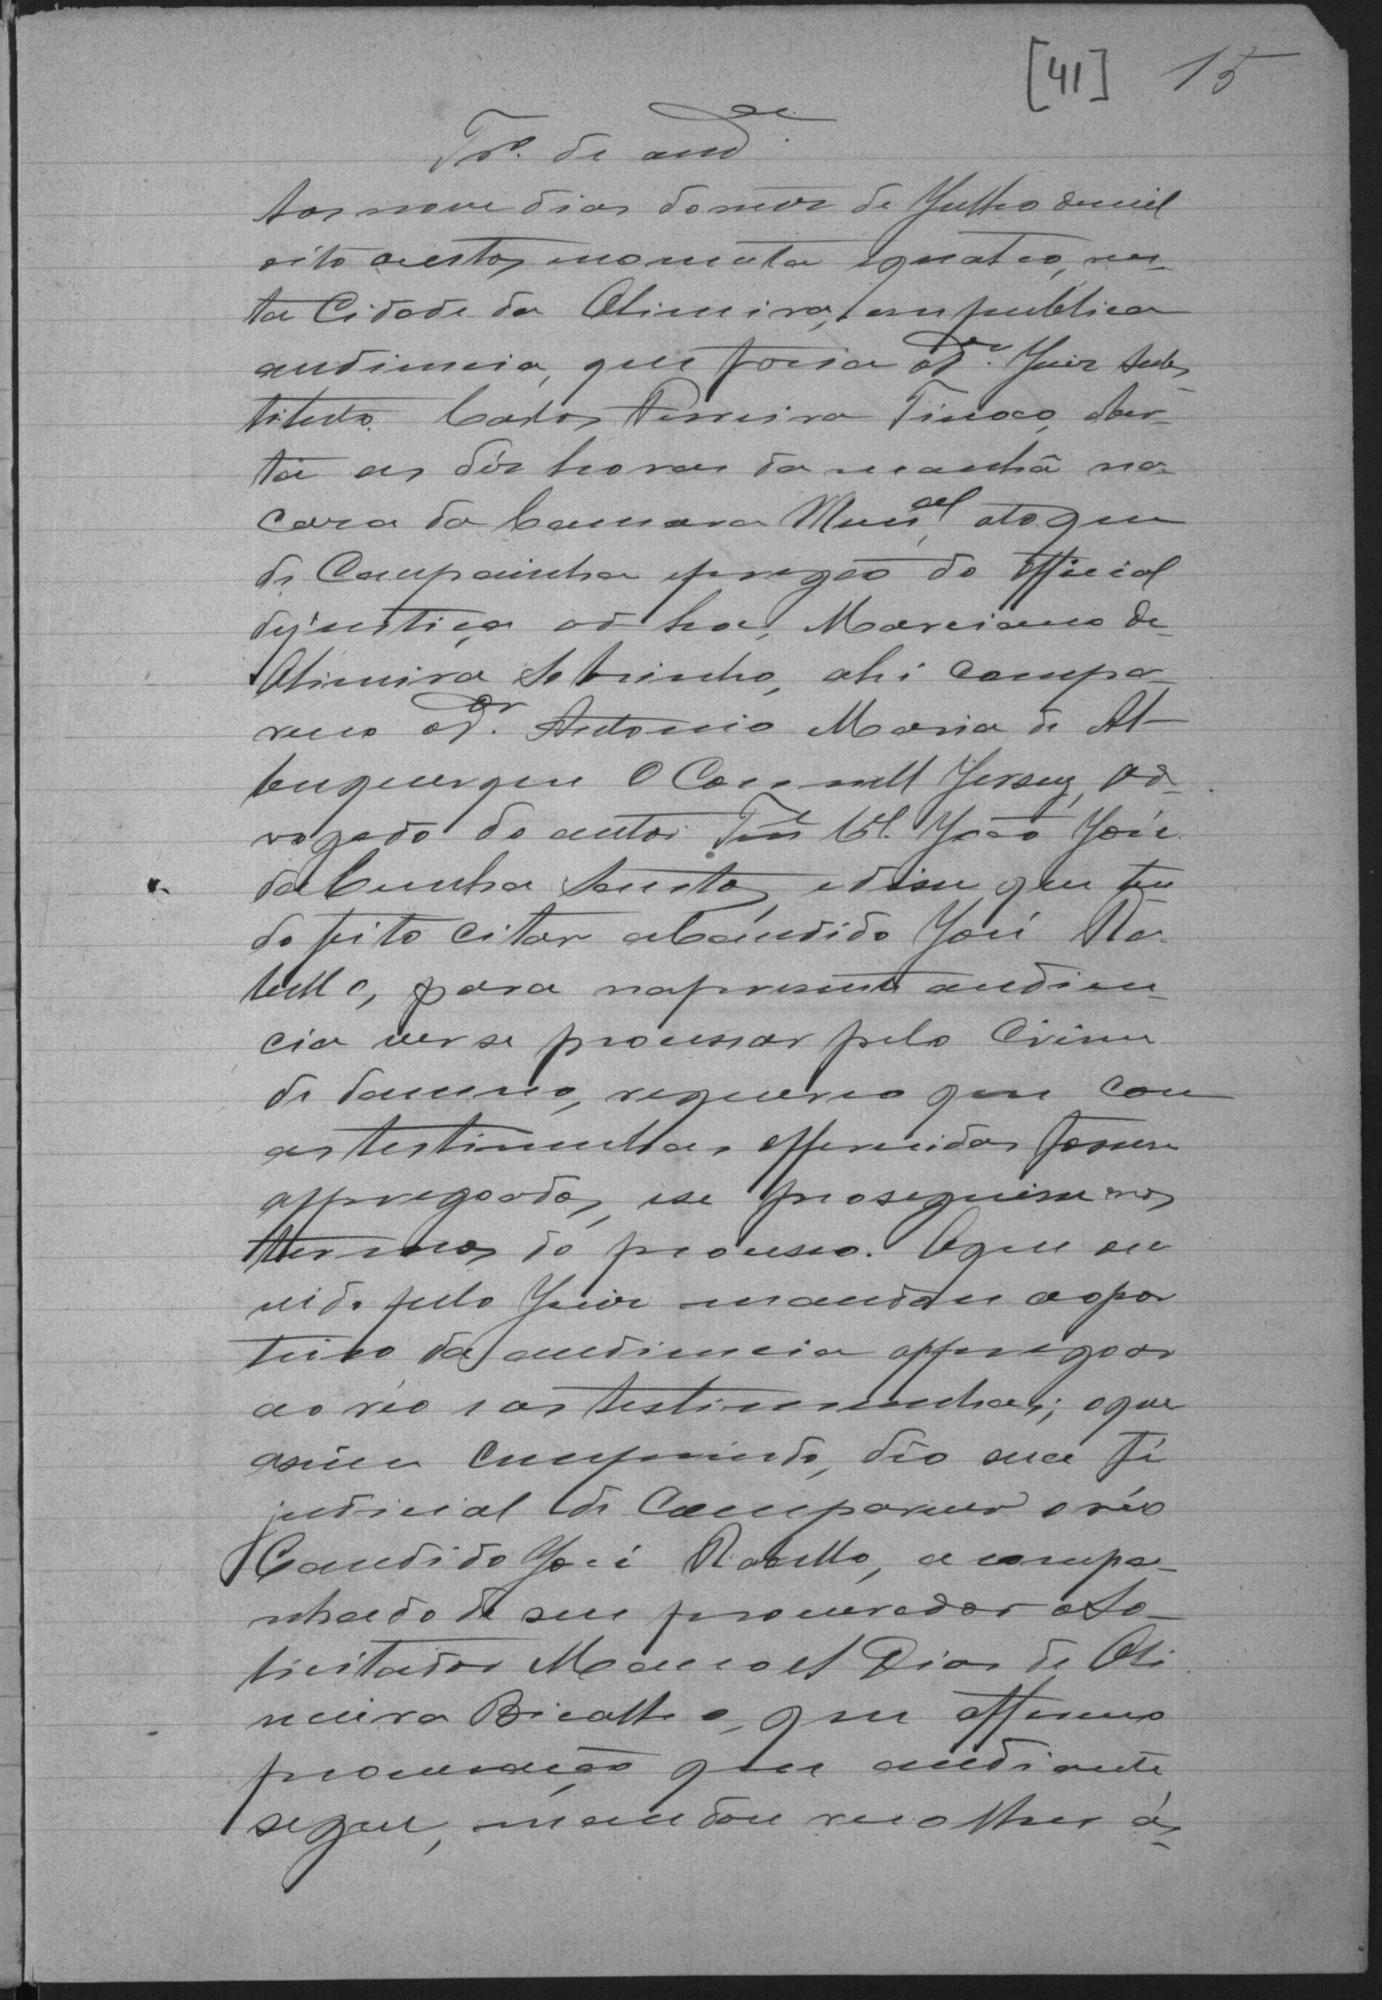 [41] 15
Tr.º de aud.ca
Aos nove dias do mez de Julho de mil
oito centos noventa e quatro, nes-
ta Cidade da Oliveira, em publica
audiencia, que fazia o Dr. Juiz Subs-
tituto Carlos Ferreira Tinoco, aber-
ta as déz horas da manhã na
casa da Camara Mun.al, a toque
de Campainha e pregão do Official
de justiça ad hoc, Marciano de
Oliveira Sobrinho, ahi compa-
receo o Dr. Antonio Maria de Al-
buquerque O Connell Jersey, ad-
vogado do autor Ten.e C.el João José
da Cunha Santos, e disse que ten
do feito citar a Candido José Ra-
bello, para na presente audien-
cia ver se processar pelo Crime
de damno, requereo que com
as testimunhas offerecidas fossem
apregoados, e se proseguisse nos
termos do processo. O que ou
vido pelo Juiz mandou ao por
teiro da audiencia apregoar
ao réo e as testimunhas; o que
assim cumprindo, dêo sua fé
judicial de Comparecer o réo
Candido José Rabello, acompa-
nhado de seu procurador o So-
licitador Manoel Dias de Oli
veira Bicalho, que offereceo
procuração que a diante
segue, mandou recolher ás